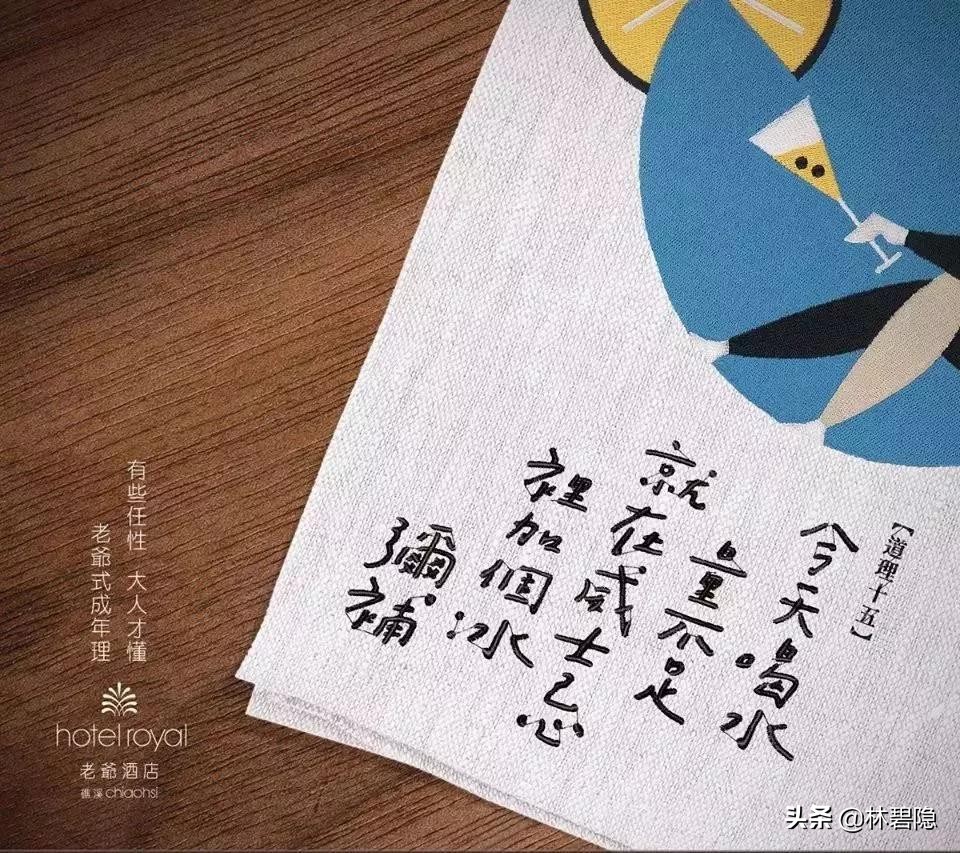 【道理十五】
今天喝水
量不足
就在威士忌
裡加個冰
彌補
有些任性 大人才懂
老爺式成年理
hotel royal
老爺酒店
礁溪 chiaohsi
头条 @林碧隐